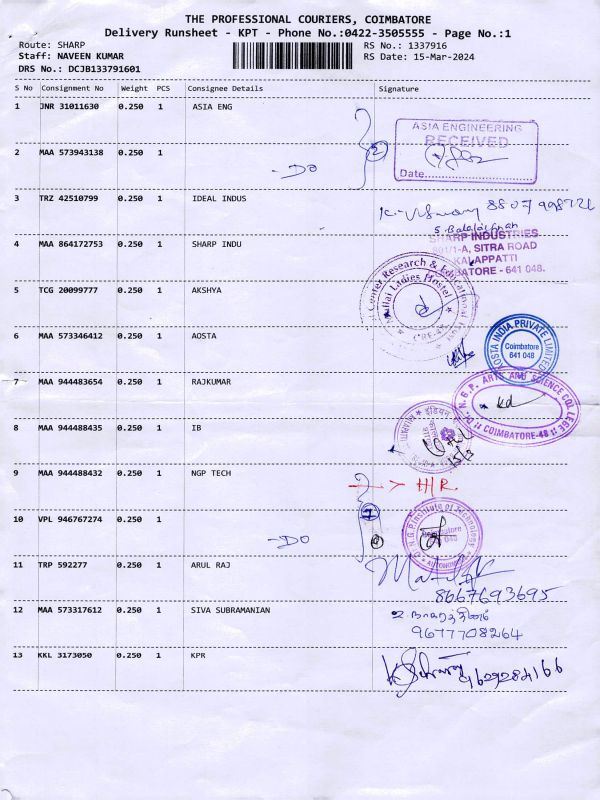 THE PROFESSIONAL COURIERS, COIMBATORE
Delivery Runsheet - KPT - Phone No.:0422-3505555 - Page No.:1
Route: SHARP RS No.: 1337916
Staff: NAVEEN KUMAR RS Date: 15-Mar-2024
DRS No.: DCJB133791601
S No Consignment No Weight PCS Consignee Details Signature
1 JNR 31011630 0.250 1 ASIA ENG
ASIA ENGINEERING
RECEIVED
Date
2 MAA 573943138 0.250 1
- DO 2
3 TRZ 42510799 0.250 1 IDEAL INDUS
4 MAA 864172753 0.250 1 SHARP INDU
SHARP INDUSTRIES
SITRA ROAD
KALAPPATTI
COIMBATORE - 641 048.
5 TCG 20099777 0.250 1 AKSHYA
Center Research & Educational
Mullai Ladies Hostel
6 MAA 573346412 0.250 1 AOSTA
AOSTA INDIA PRIVATE LIMITED
Coimbatore
641 048
7 MAA 944483654 0.250 1 RAJKUMAR
Dr. N. G. P. ARTS AND SCIENCE COLLEGE
COIMBATORE-48
8 MAA 944488435 0.250 1 IB
15/3
9 MAA 944488432 0.250 1 NGP TECH
> H/R
10 VPL 946767274 0.250 1
- DO
N.G.P. Institute of Technology
Coimbatore
AUTONOMOUS
11 TRP 592277 0.250 1 ARUL RAJ
8667693695
12 MAA 573317612 0.250 1 SIVA SUBRAMANIAN
9677708264
13 KKL 3173050 0.250 1 KPR
9629284166